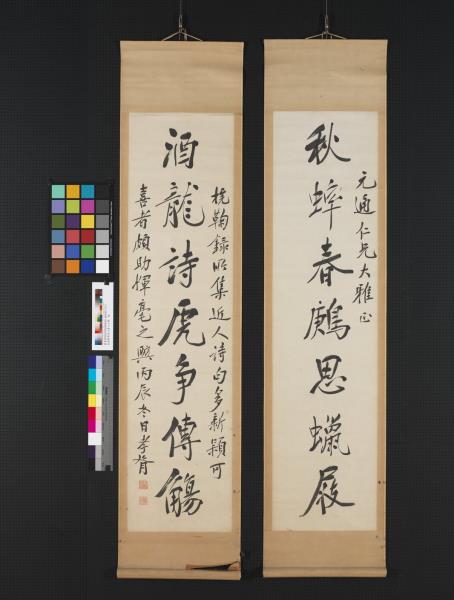 元通仁兄大雅正
秋蟀春鶊思蠟屐
梡鞠錄所集近人詩句多新穎可
酒龍詩虎爭傳觴
喜者頗助揮毫之興丙辰冬日孝胥